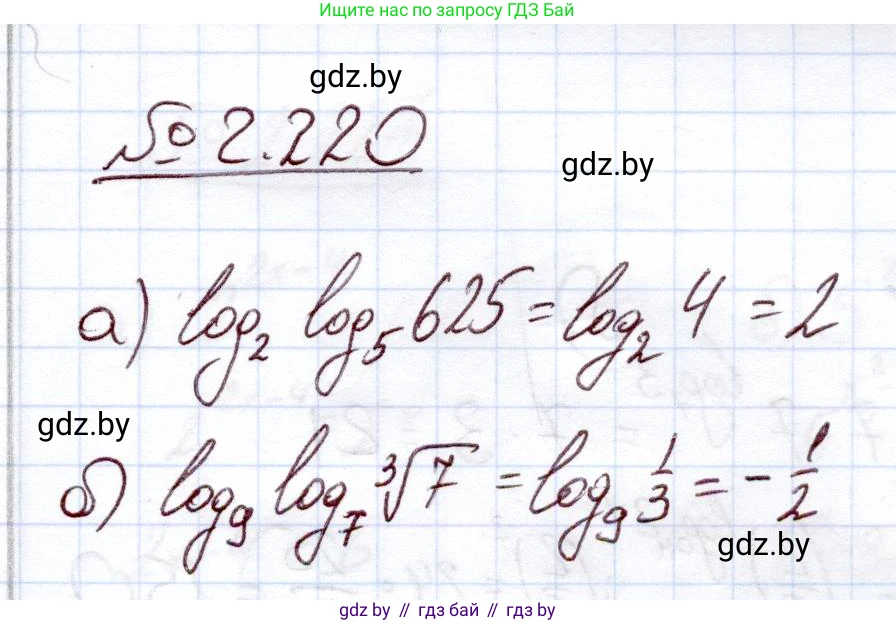 Ищите нас по запросу ГДЗ Бай
gdz.by
№ 2.220
gdz.by
а) log₂ log₅ 625 = log₂ 4 = 2
gdz.by
б) log₉ log₇ ∛7 = log₉ 1/3 = - 1/2
gdz.by
gdz.by // гдз бай // gdz by